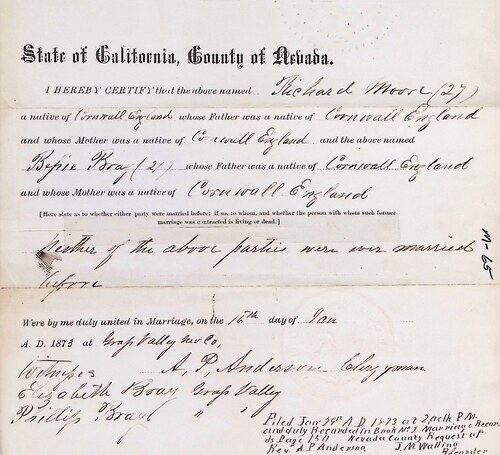 State of California, County of Nevada.
I HEREBY CERTIFY that the above named Richard Moore (27)
a native of Cornwall England whose Father was a native of Cornwall England
and whose Mother was a native of Cornwall England and the above named
Bessie Bray (21) whose Father was a native of Cornwall England
and whose Mother was a native of Cornwall England
[Here state as to whether either party were married before; if so, to whom, and whether the person with whom such former
marriage was contracted is living or dead.]
Neither of the above parties were ever married
before
M-65
Were by me duly united in Marriage, on the 16th day of Jan
A. D. 1873 at Grass Valley Nev Co,
Witnesses A, P, Anderson Clergyman
Elizabeth Bray Grass Valley
Phillip Bray " "
Filed Jan 29th A.D. 1873 at 2 oclk P.M.
and duly Recorded in Book No 1 Marriage Recor
ds Page 150 Nevada County Request of
Rev. A.P Anderson J.M. Walling
Recorder